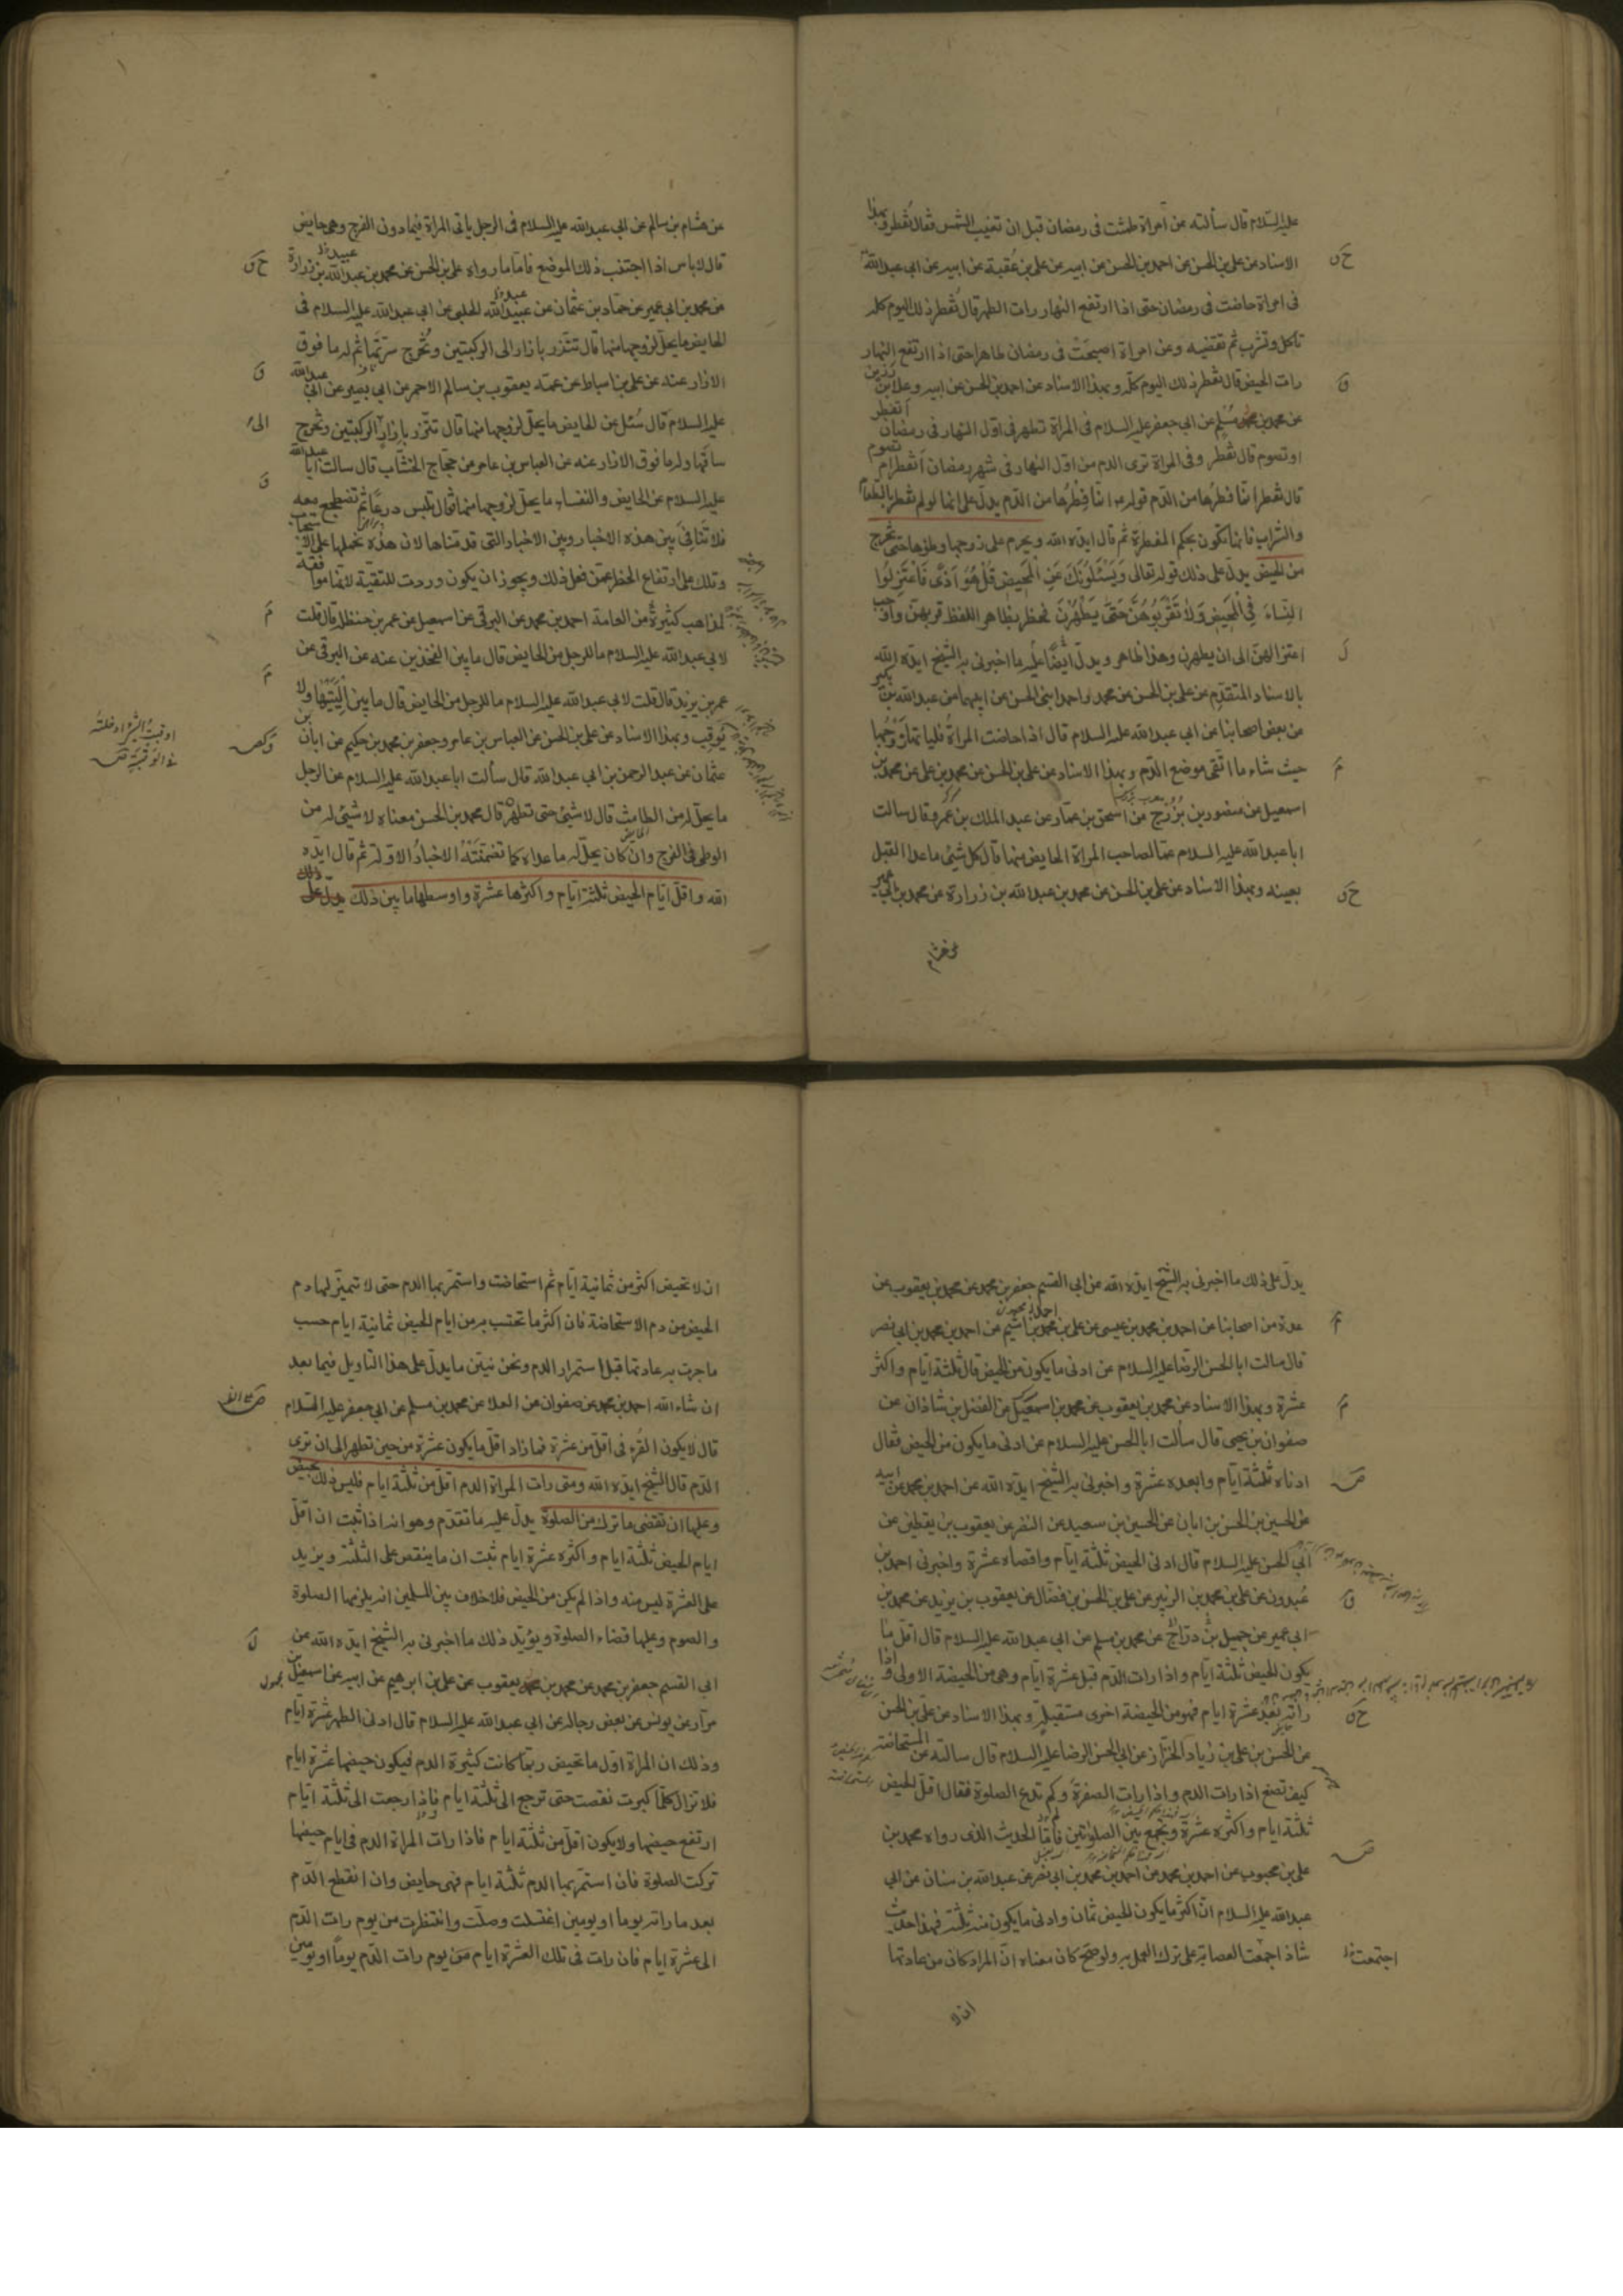 عليه السلام قال سألته عن امرأة طمثت فى رمضان قبل ان تغيب الشمس فقال تفطر وبهذا
الاسناد عن على بن الحسن عن احمد بن الحسن عن ابيه عن على بن عقبة عن ابيه عن ابى عبدالله
فى امراة حاضت فى رمضان حتى اذا ارتفع النهار رات الطهر قال تفطر ذلك اليوم كله
تاكل وتشرب ثم تقضيه وعن امراة اصبحت فى رمضان طاهرا حتى اذا ارتفع النهار
رات الحيض قال تفطر ذلك اليوم كله وبهذا الاسناد عن احمد بن الحسن عن ابيه وعلا بن رزين
عن محمد بن مسلم عن ابى جعفر عليه السلام فى المرأة تطهر فى اول النهار فى رمضان أتفطر
او تصوم قال تفطر وفى المراة ترى الدم من اول النهار فى شهر رمضان أتفطر ام تصوم
قال تفطر انما فطرها من الدم قوله انما فطرها من الدم يدل على انها لو لم تفطر بالطعام
والشراب فانها تكون بحكم المفطرة ثم قال ايده الله ويحرم على زوجها وطؤها حتى تخرج
من الحيض يدل على ذلك قوله تعالى وَيَسْئَلُونَكَ عَنِ الْمَحِيضِ قُلْ هُوَ اَذًى فَاعْتَزِلُوا
النِّسَاءَ فِي الْمَحِيضِ وَلَا تَقْرَبُوهُنَّ حَتَّى يَطْهُرْنَ فحظر بظاهر اللفظ قربهن واوجب
اعتزالهن الى ان يطهرن وهذا ظاهر ويدل ايضا عليه ما اخبرنى به الشيخ ايده الله
بالاسناد المتقدم عن على بن الحسن عن محمد واحمد ابنى الحسن عن ابيهما عن عبدالله بن بكير
عن بعض اصحابنا عن ابى عبدالله عليه السلام قال اذا حاضت المراة فلياتها زوجها
حيث شاء ما اتقى موضع الدم وبهذا الاسناد عن على بن الحسن عن محمد بن على عن محمد بن
اسمعيل عن منصور بن بزرج عن اسحق بن عمار عن عبد الملك بن عمرو قال سالت
ابا عبدالله عليه السلام عما لصاحب المراة الحايض منها قال كل شيئ ما عدا القبل
بعينه وبهذا الاسناد عن على بن الحسن عن محمد بن عبدالله بن زرارة عن محمد بن ابى عمير
عن هشام
عن هشام بن سالم عن ابى عبدالله عليه السلام فى الرجل ياتى المراة فيما دون الفرج وهى حايض
قال لا باس اذا اجتنب ذلك الموضع فاما ما رواه على بن الحسن عن محمد بن عبدالله بن زرارة
عن محمد بن ابى عمير عن حماد بن عثمان عن عبيدالله الحلبى عن ابى عبدالله عليه السلام فى
الحايض ما يحل لزوجها منها قال تتزر بازار الى الركبتين وتخرج سرتها ثم له ما فوق
الازار عنه عن على بن اسباط عن عمه يعقوب بن سالم الاحمر عن ابى بصير عن ابى عبدالله
عليه السلام قال سئل عن الحايض ما يحل لزوجها منها قال تتزر بازار الى الركبتين وتخرج
ساقها وله ما فوق الازار عنه عن العباس بن عامر عن حجاج الخشاب قال سالت ابا عبدالله
عليه السلام عن الحايض والنفساء ما يحل لزوجها منها قال تلبس درعا ثم تضطجع معه
فلا تنافى بين هذه الاخبار وبين الاخبار التى قدمناها لان هذه نحملها على الاستحباب
وتلك على ارتفاع الحظر عمن فعل ذلك ويجوز ان يكون وردت للتقية لانها موافقة
لمذاهب كثير من العامة احمد بن محمد عن البرقى عن اسمعيل عن عمر بن حنظلة قال قلت
لابى عبدالله عليه السلام ما للرجل من الحايض قال ما بين الفخذين عنه عن البرقى عن
عمر بن يزيد قال قلت لابى عبدالله عليه السلام ما للرجل من الحايض قال ما بين اليتيها ولا
يوقب وبهذا الاسناد عن على بن الحسن عن العباس بن عامر وجعفر بن محمد بن حكيم عن ابان بن
عثمان عن عبد الرحمن بن ابى عبدالله قال سألت ابا عبدالله عليه السلام عن الرجل
ما يحل له من الطامث قال لا شيئ حتى تطهر قال محمد بن الحسن معناه لا شيئ له من
الوطى فى الفرج وان كان يحل له ما عداه كما تضمنته الاخبار الاولة ثم قال ايده
الله واقل ايام الحيض ثلثة ايام واكثرها عشرة واوسطها ما بين ذلك
يدل على ذلك ما اخبرنى به الشيخ ايده الله عن ابى القسم جعفر بن محمد عن محمد بن يعقوب عن
عدة من اصحابنا عن احمد بن محمد بن عيسى عن على بن محمد بن اشيم عن احمد بن محمد بن ابى نصر
قال سالت ابا الحسن الرضا عليه السلام عن ادنى ما يكون من الحيض قال ثلثة ايام واكثره
عشرة وبهذا الاسناد عن محمد بن يعقوب عن محمد بن اسمعيل عن الفضل بن شاذان عن
صفوان بن يحيى قال سألت ابا الحسن عليه السلام عن ادنى ما يكون من الحيض فقال
ادناه ثلثة ايام وابعده عشرة واخبرنى به الشيخ ايده الله عن احمد بن محمد عن ابيه
عن الحسين بن الحسن بن ابان عن الحسين بن سعيد عن النضر عن يعقوب بن يقطين عن
ابى الحسن عليه السلام قال ادنى الحيض ثلثة ايام واقصاه عشرة واخبرنى احمد بن
عبدون عن على بن محمد بن الزبير عن على بن الحسن بن فضال عن يعقوب بن يزيد عن محمد بن
ابى عمير عن جميل بن دراج عن محمد بن مسلم عن ابى عبدالله عليه السلام قال اقل ما
يكون الحيض ثلثة ايام واذا رات الدم قبل عشرة ايام وهى من الحيضة الاولى واذا
راته بعد عشرة ايام فهو من الحيضة اخرى مستقبلة وبهذا الاسناد عن على بن الحسن
عن الحسن بن على بن زياد الخزاز عن ابى الحسن الرضا عليه السلام قال سالته عن المستحاضة
كيف تصنع اذا رات الدم واذا رات الصفرة وكم تدع الصلوة فقال اقل الحيض
ثلثة ايام واكثره عشرة وتجمع بين الصلوتين فاما الحديث الذى رواه محمد بن
على بن محبوب عن احمد بن محمد عن احمد بن محمد بن ابى نصر عن عبدالله بن سنان عن ابى
عبدالله عليه السلام ان اكثر ما يكون الحيض ثمان وادنى ما يكون منه ثلثة فهذا حديث
شاذ اجمعت العصابة على ترك العمل به ولو صح كان معناه ان المراة كان من عادتها
اجتمعت
ان لا
ان لا تحيض اكثر من ثمانية ايام ثم استحاضت واستمر بها الدم حتى لا تتميز لها دم
الحيض من دم الاستحاضة فان اكثر ما تحتسب به من ايام الحيض ثمانية ايام حسب
ما جرت به عادتها قبل استمرار الدم ونحن نبين ما يدل على هذا التاويل فيما بعد
ان شاء الله احمد بن محمد عن صفوان عن العلا عن محمد بن مسلم عن ابى جعفر عليه السلام
قال لا يكون القرء فى اقل من عشرة فما زاد اقل ما يكون عشرة من حين تطهر الى ان ترى
الدم قال الشيخ ايده الله ومتى رات المراة الدم اقل من ثلثة ايام فليس ذلك بحيض
وعليها ان تقضى ما تركته من الصلوة يدل عليه ما تقدم وهو انه اذا ثبت ان اقل
ايام الحيض ثلثة ايام واكثره عشرة ايام ثبت ان ما ينقص على الثلثة ويزيد
على العشرة ليس منه واذا لم يكن من الحيض فلا خلاف بين المسلمين انه يلزمها الصلوة
والصوم وعليها قضاء الصلوة ويؤيد ذلك ما اخبرنى به الشيخ ايده الله عن
ابى القسم جعفر بن محمد عن محمد بن يعقوب عن على بن ابرهيم عن ابيه عن اسمعيل بن
مرار عن يونس عن بعض رجاله عن ابى عبدالله عليه السلام قال ادنى الطهر عشرة ايام
وذلك ان المراة اول ما تحيض ربما كانت كثيرة الدم فيكون حيضها عشرة ايام
فلا تزال كلما كبرت نقصت حتى ترجع الى ثلثة ايام فاذا رجعت الى ثلثة ايام
ارتفع حيضها ولا يكون اقل من ثلثة ايام فاذا رات المراة الدم فى ايام حيضها
تركت الصلوة فان استمر بها الدم ثلثة ايام فهى حايض وان انقطع الدم
بعد ما راته يوما او يومين اغتسلت وصلت وانتظرت من يوم رات الدم
الى عشرة ايام فان رات فى تلك العشرة ايام من يوم رات الدم يوما او يومين